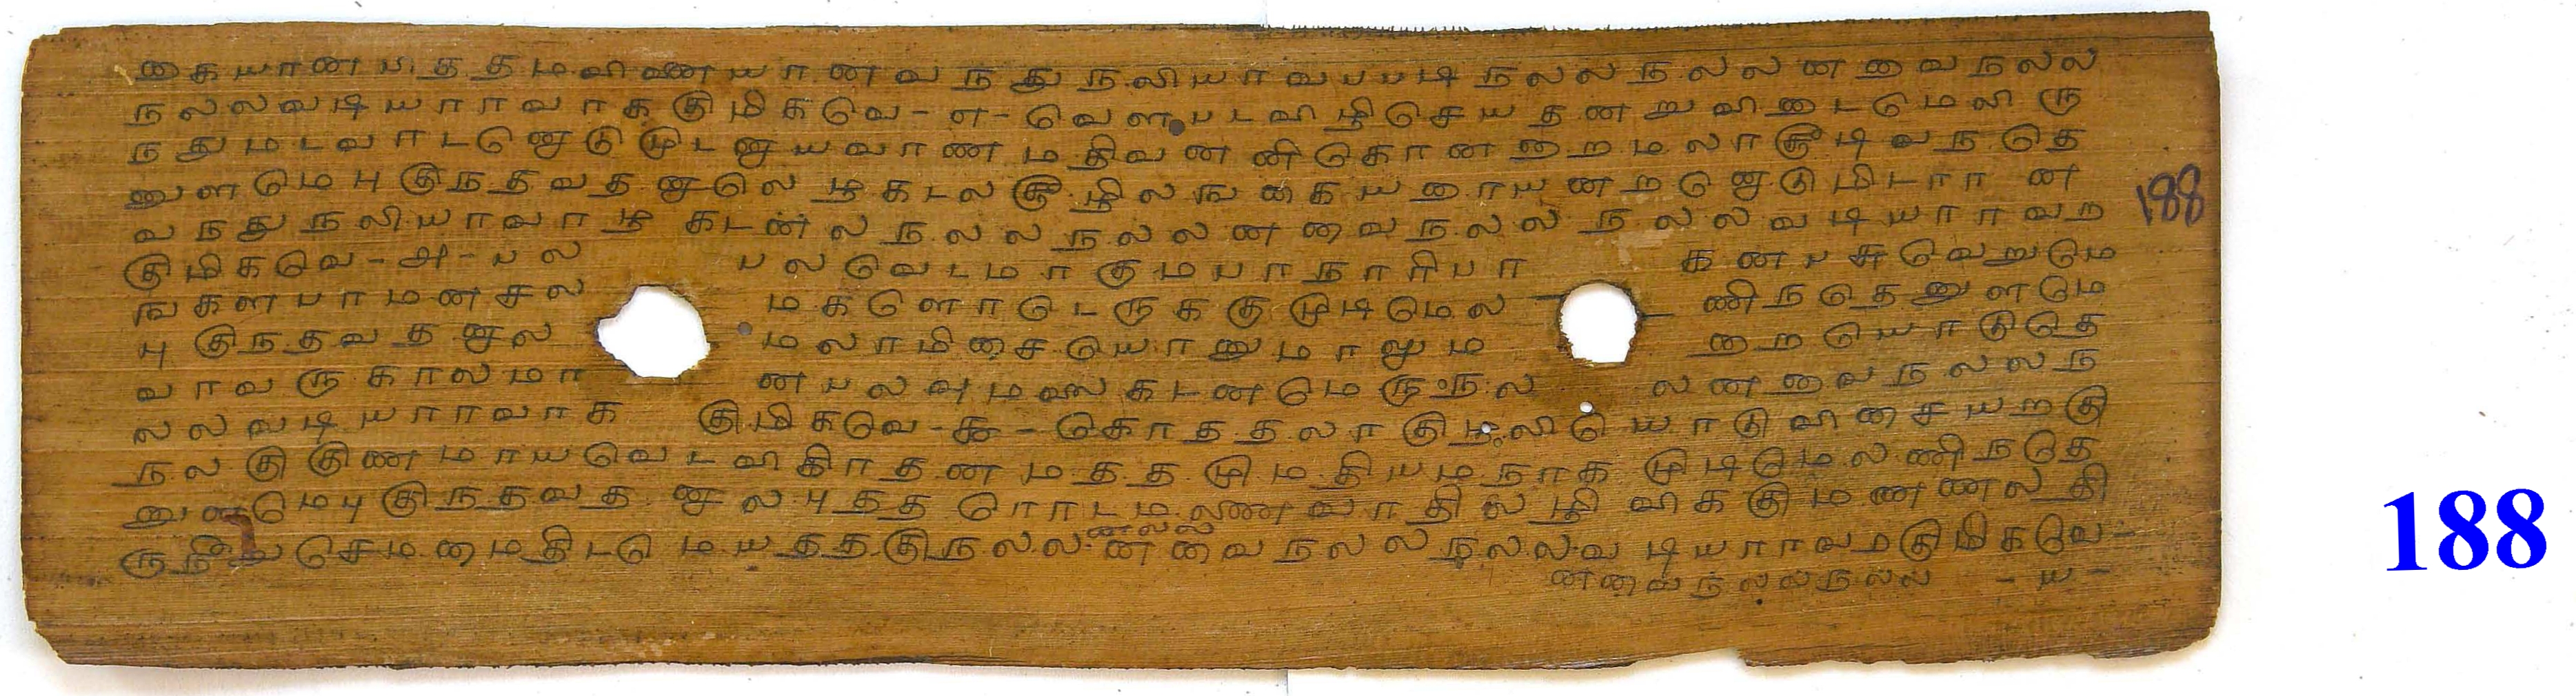 கையானபிததமவினையானவநதுநலியாவபபடிநலலநலலனவைநலல
நலலவடியாரவரககுமிகவே-எ-வேளபடவிழிசெயதனறுவிடைமேலிரு
நதுமடவாடனோடுமுடனாயவாணமதிவனனிகொனறைமலரசூடிவநதெ
னுளமேபுகுநதவதனாலேழகடலசூழிலஙகையரையனறனோடுமிடரான
வநதுநலியாவாழகடனலநலலநலலனவைநலலநலலவடியாரவற
குமிகவே-அ-பல பலவேடமாகுமபரநாரிபா கனபசுவேறுமே
ஙகளபரமனசல மகளோடெருககுமுடிமேல ணிநதெனுளமே
புகுநதவதனால மலரமிசையோனுமாலும றையோடுதெ
வரவருகாலமா னபலவுமலைகடனமேருநல லனவைநலலந
லலவடியாரவரக குமிகவே-கூ-கொததலரகுழலியோடுவிசையறகு
நலகுகுணமாயவேடவிகிரதனமததமுமதியமநாகமுடிமேலணிநதெ
னுளமேபுகுநதவதனாலபுததரொடமணைவாதிலழிவிககுமணணலதி
ருநீறுசெமமைதிடமேயததகுநலலனவைநலலநலலவடியாரவரகுமிகவே-
னவைநலலநலல -ய-